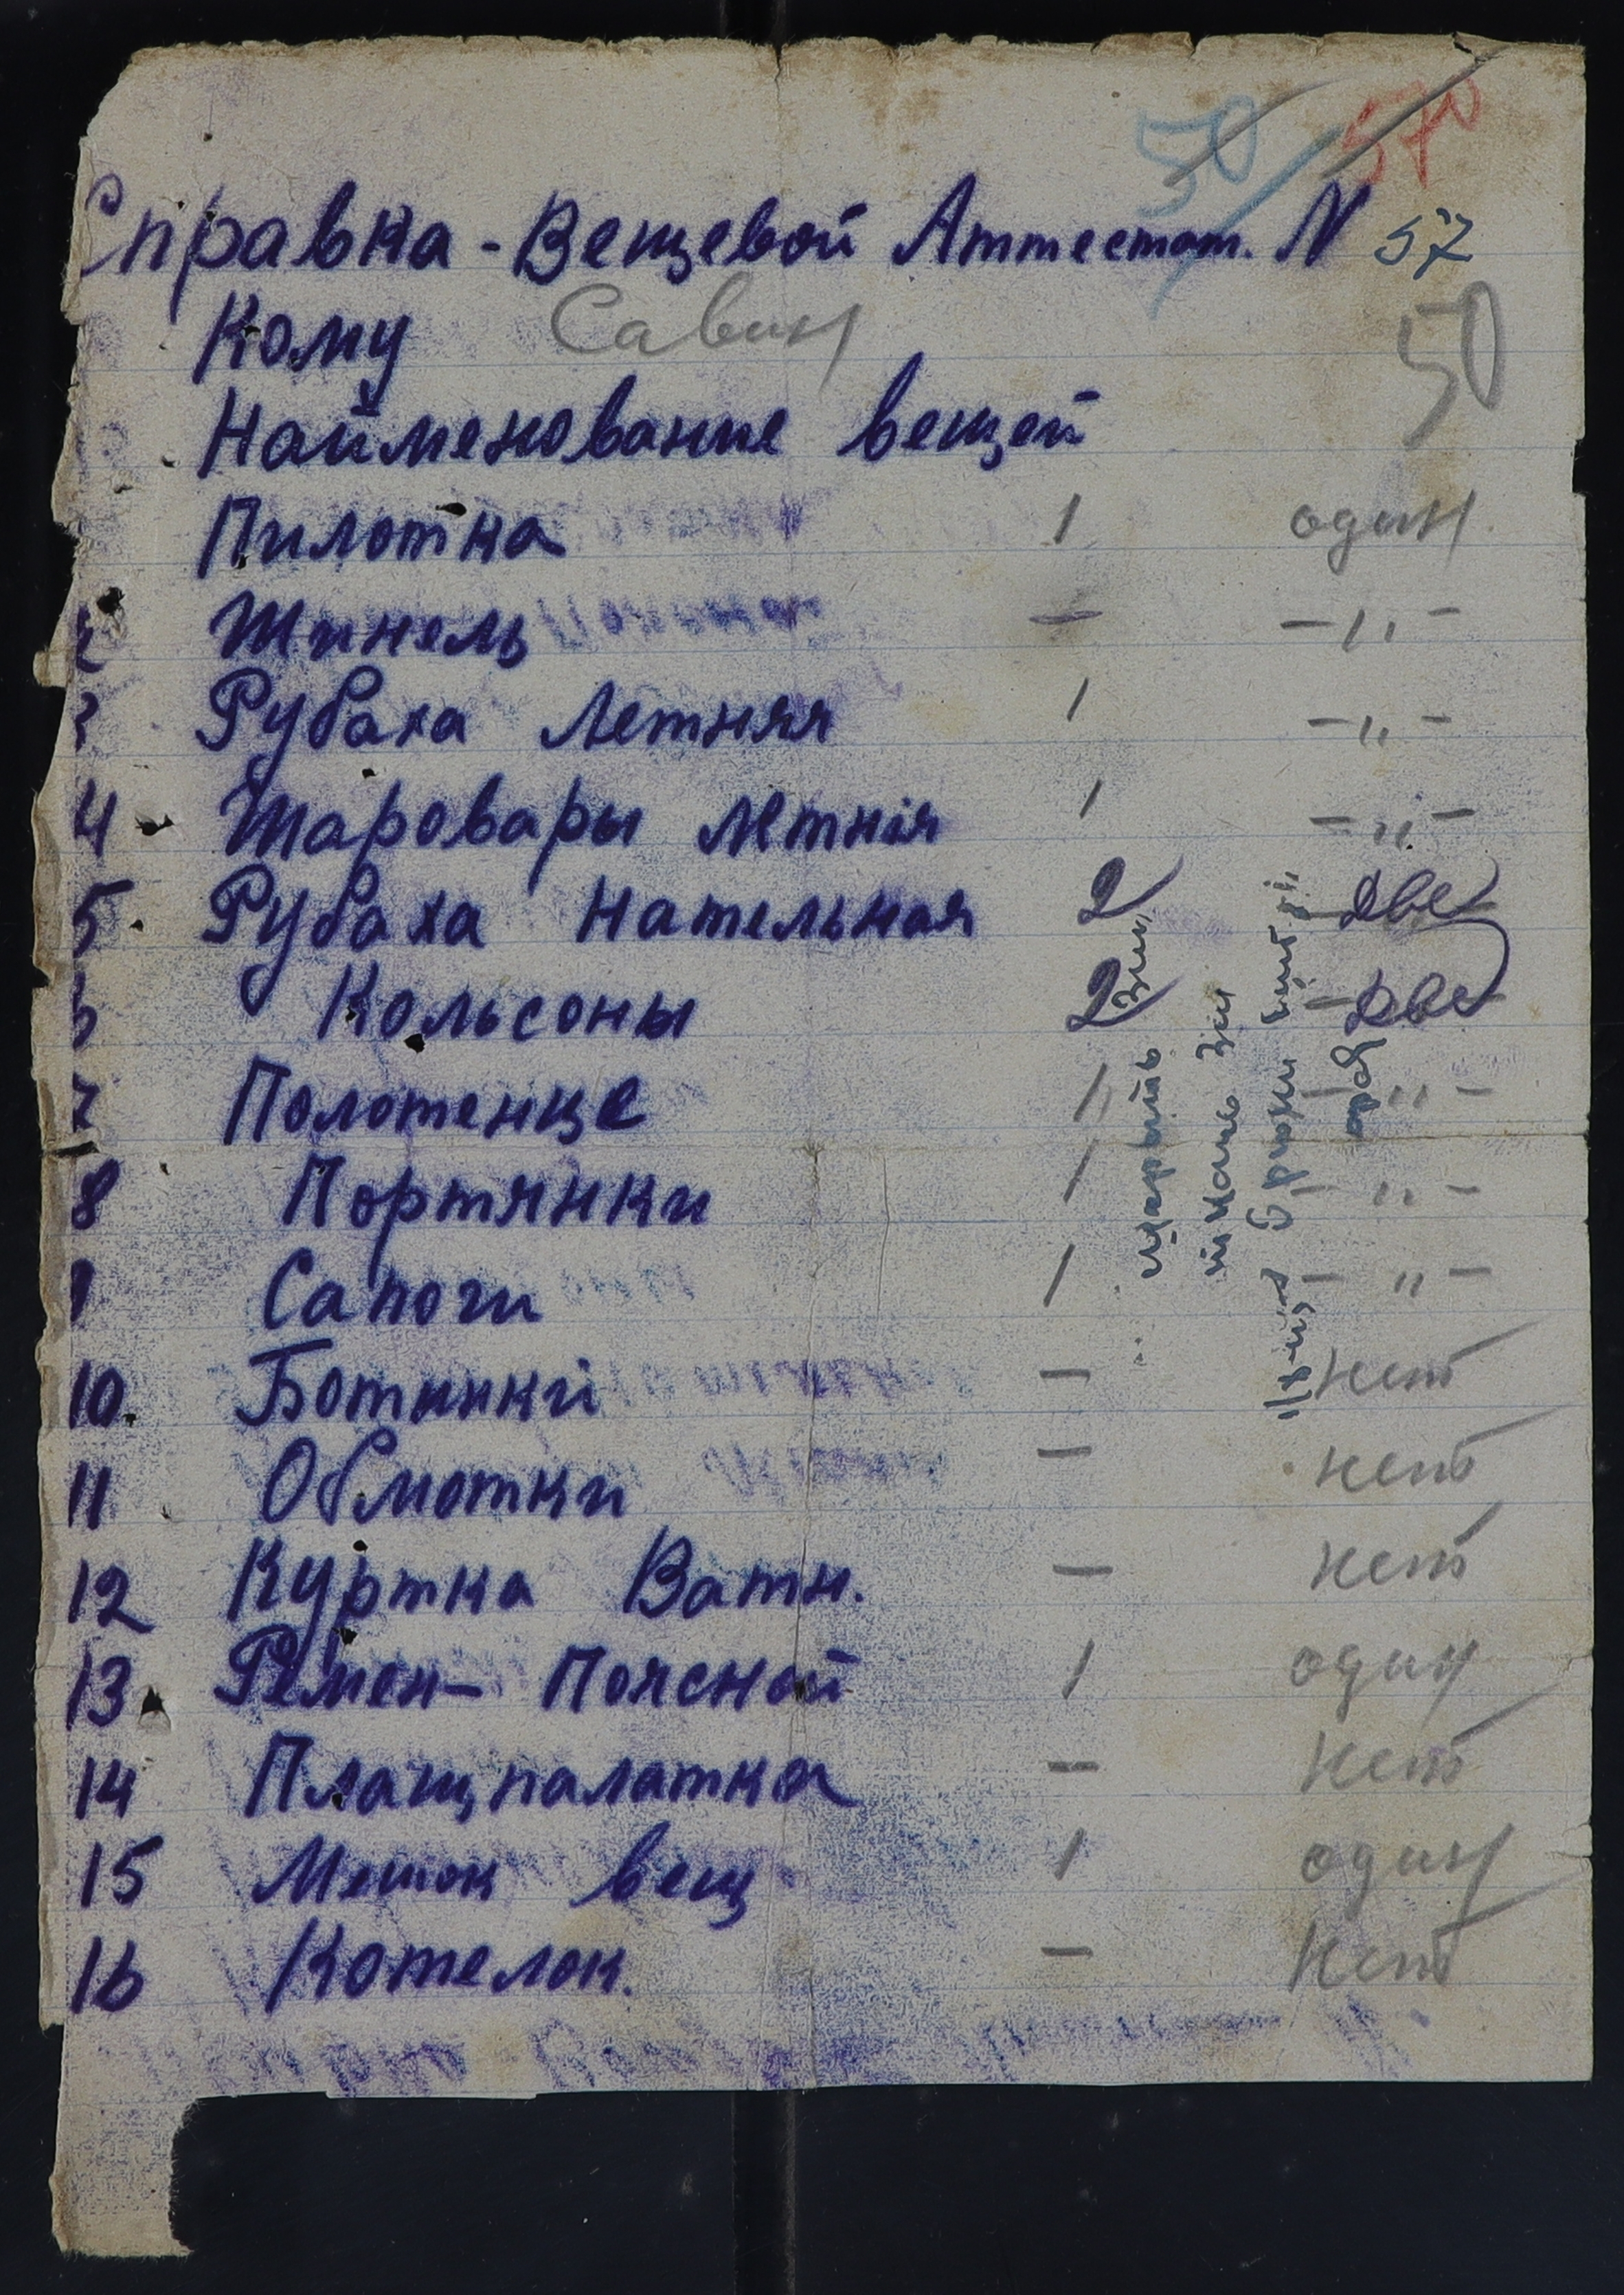 50 570
Справка - Вещевой Аттестат. N 57
Кому Савин 50
Найменование вещей
Пилотка 1 один
2 Шинель — — 1 " —
3 Рубаха летняя 1 — " —
4 Шаровары летнія 1 — " —
5 Рубаха Нательная 2 две
6 Кольсоны 2 две
7 Полотенце 1 — " —
8 Портянки 1 — " —
9 Сапоги 1 — " —
10 Ботинкй — нет
11 Обмотки — нет
12 Куртка Ватн. — нет
13 Ремен- Поясной 1 один
14 Плащпалатка — нет
15 Мешок вещ 1 один
16 Котелок. — нет